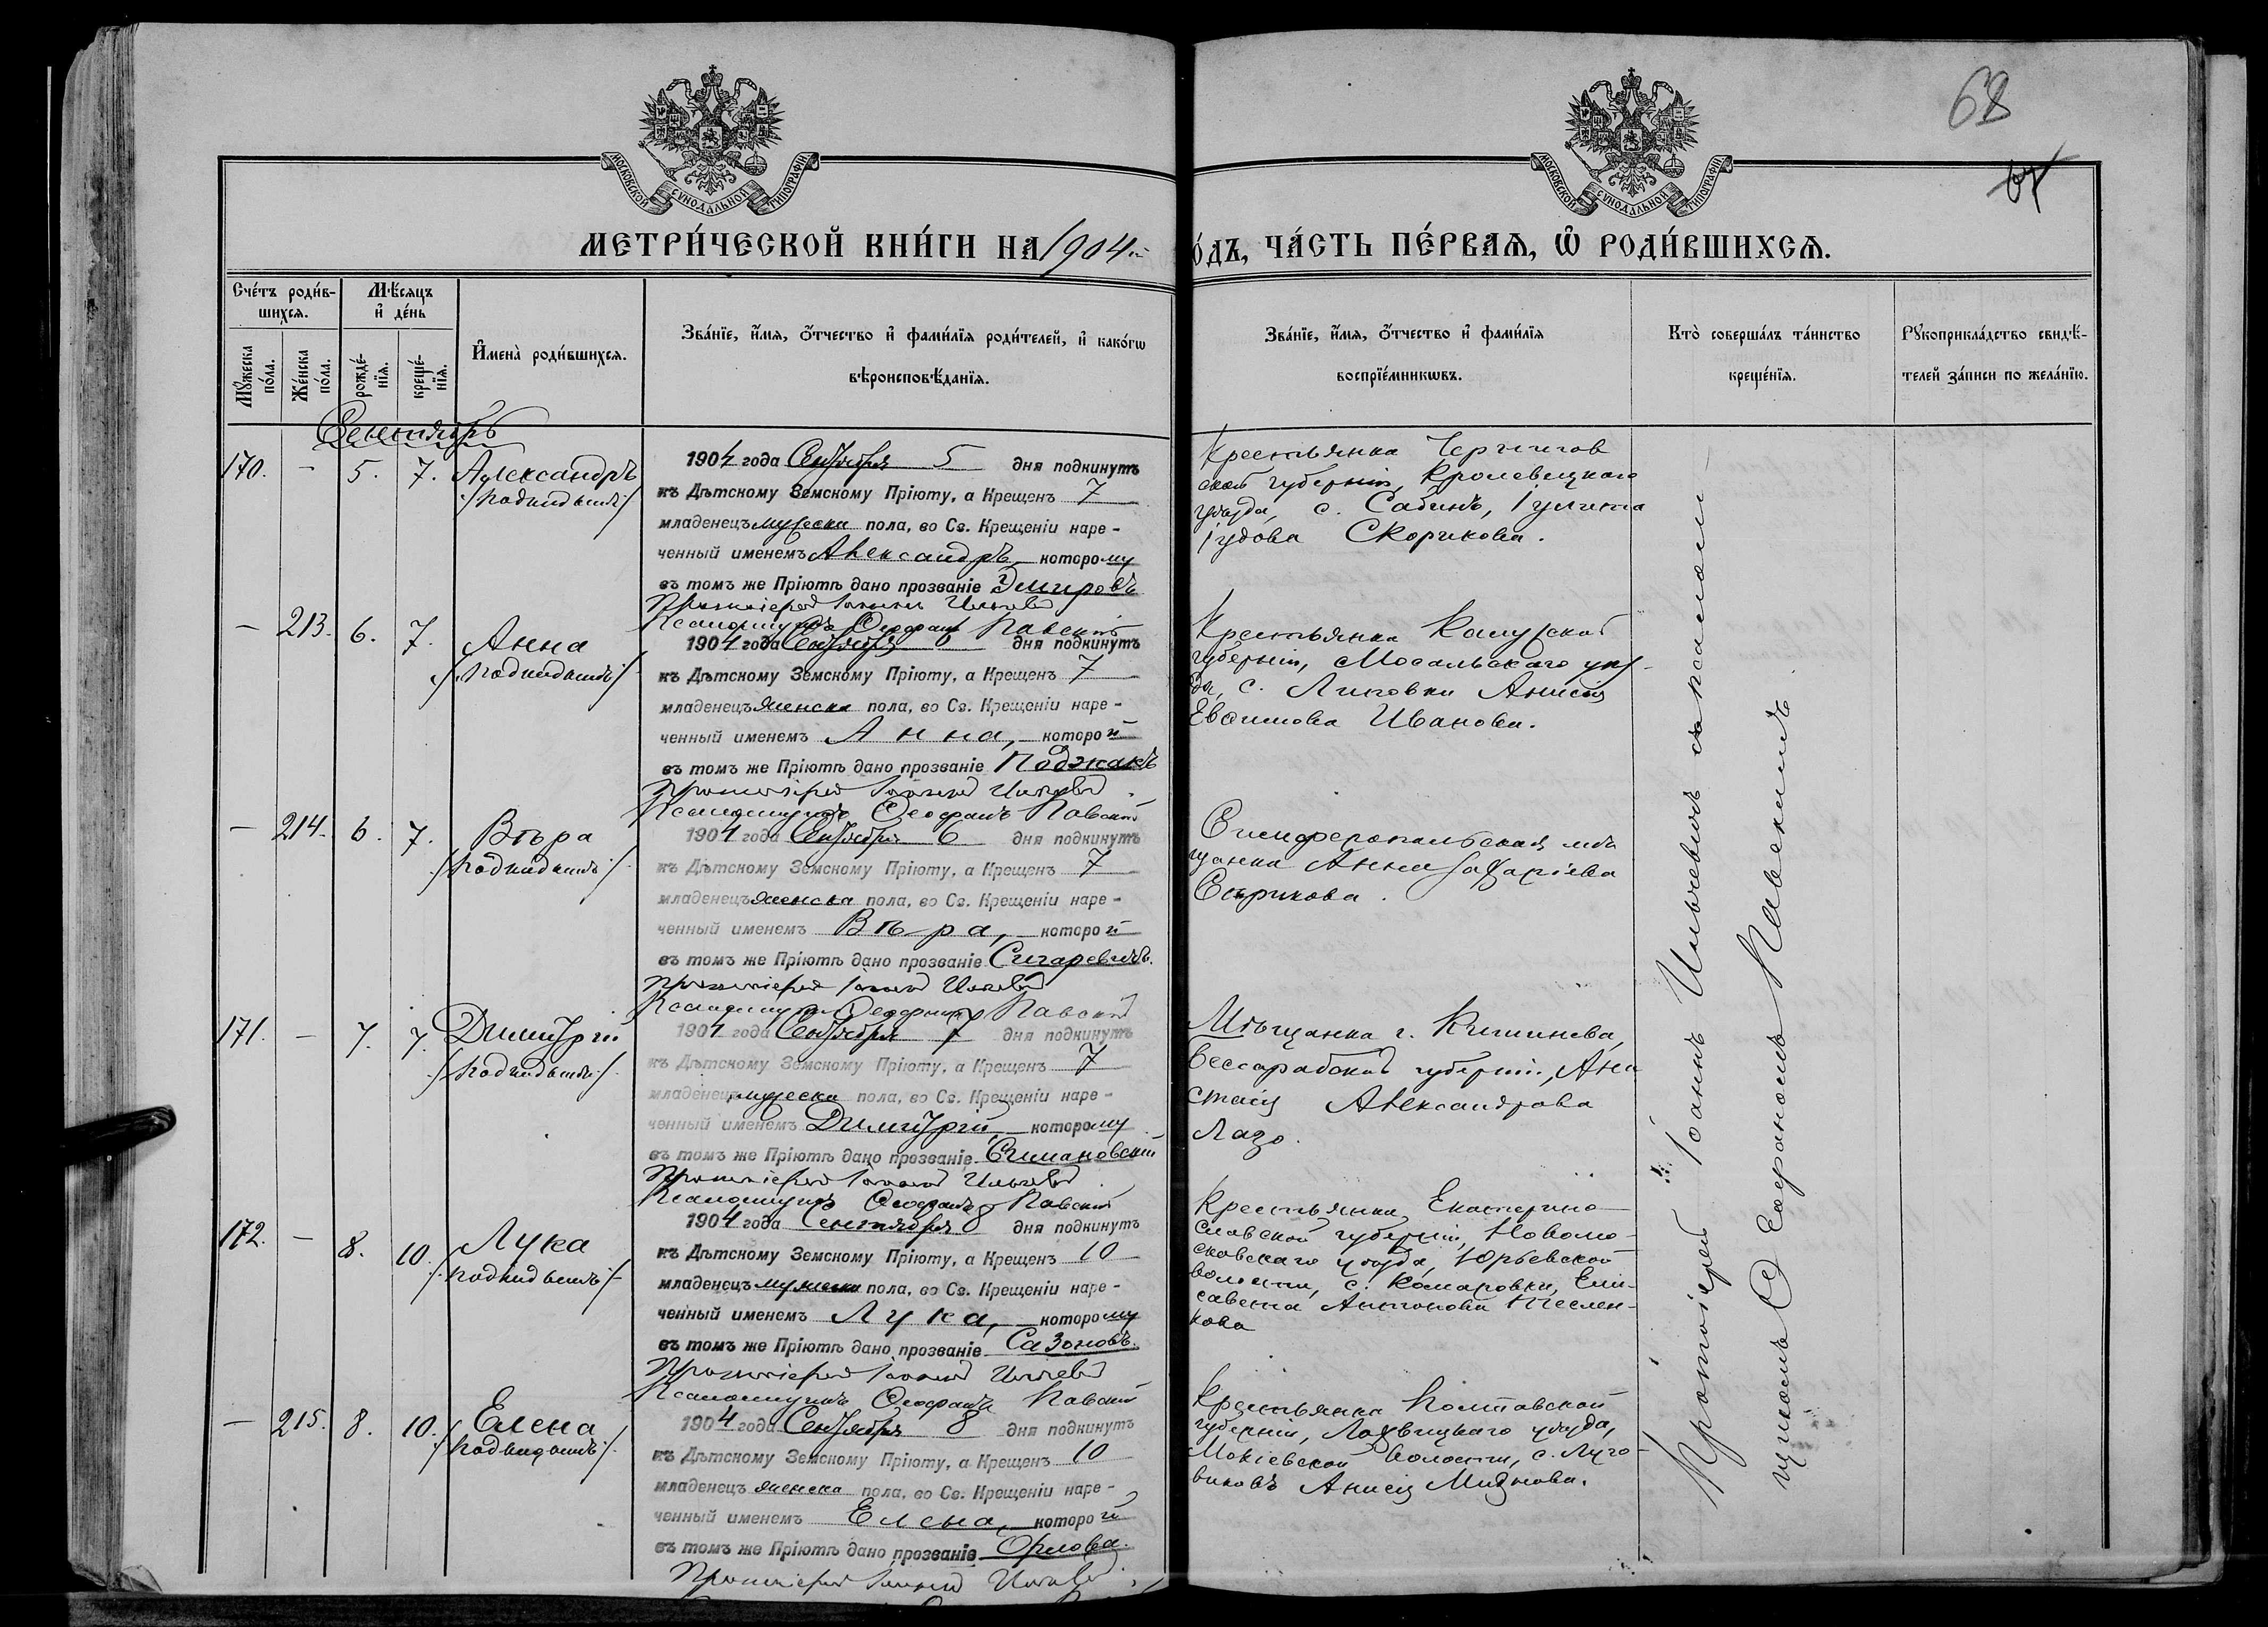 68
67
МОСКОВСКОЙ СѴНОДАЛЬНОЙ ТИПОГРАФІИ
МОСКОВСКОЙ СѴНОДАЛЬНОЙ ТИПОГРАФІИ
МЕТРИ́ЧЕСКОЙ КНИ́ГИ НА 1904й
О́ДЪ, ЧА́СТЬ ПЕ́РВАѦ, Ѡ҆ РОДИ́ВШИХСѦ.
Сче́тъ роди́в-
шихсѧ.
Мꙋ́жеска по́ла.
Же́нска по́ла.
Мѣ́сѧцъ
и҆ де́нь
рожде́-
нїѧ.
креще́-
нїѧ.
И҆мена̀ роди́вшихсѧ.
Зва́нїе, и҆́мѧ, о҆́тчество и҆ фами́лїѧ роди́телей, и҆ како́гѡ
вѣроисповѣ́данїѧ.
Зва́нїе, и҆́мѧ, о҆́тчество и҆ фами́лїѧ
воспрїе́мникѡвъ.
Кто̀ соверша́лъ та́инство
креще́нїѧ.
Рꙋкоприкла́дство свидѣ́-
телей за́писи по жела́нїю.
Сентябрь
170. – 5. 7. Александръ
/:подкидышъ:/
1904 года Сентября 5 дня подкинутъ
къ Дѣтскому Земскому Пріюту, а Крещенъ 7
младенецъ мужеска пола, во Св. Крещеніи наре-
ченный именемъ Александръ, которому
въ томъ же Пріютѣ дано прозваніе Эмировъ
Протоіерей Іоаннъ
Псаломщикъ Ѳеофанъ Павскій
Крестьянка Чернигов
ской губерніи, Кролевецкаго
уѣзда, с. Сабинъ, Іулита
Іудова Скорикова.
– 213. 6. 7. Анна
/:подкидышъ:/
1904 года Сентября 6 дня подкинутъ
къ Дѣтскому Земскому Пріюту, а Крещенъ 7
младенецъ женска пола, во Св. Крещеніи наре-
ченный именемъ Анна, которой
въ томъ же Пріютѣ дано прозваніе Поджакъ
Протоіерей Іоаннъ
Псаломщикъ Ѳеофанъ Павскій
Крестьянка Калужской
губерніи, Мосальскаго уѣз-
да, с. Липовки Анисія
Евѳимова Иванова.
– 214. 6. 7. Вѣра
/:подкидышъ:/
1904 года Сентября 6 дня подкинутъ
къ Дѣтскому Земскому Пріюту, а Крещенъ 7
младенецъ женска пола, во Св. Крещеніи наре-
ченный именемъ Вѣра, которой
въ томъ же Пріютѣ дано прозваніе Сигаревичъ.
Протоіерей Іоаннъ
Псаломщикъ Ѳеофанъ Павскій
Симферопольская мѣ
щанка Анна Захаріева
Сприкова.
171. – 7. 7. Димитрій
/:подкидышъ:/
1904 года Сентября 7 дня подкинутъ
къ Дѣтскому Земскому Пріюту, а Крещенъ 7
младенецъ мужеска пола, во Св. Крещеніи наре-
ченный именемъ Димитрій, которому
въ томъ же Пріютѣ дано прозваніе Симановскій
Протоіерей Іоаннъ
Псаломщикъ Ѳеофанъ Павскій
Мѣщанка г. Кишинева,
Бессарабской губерніи, Ана
стасія Александрова
Лазо.
172. – 8. 10. Лука
/:подкидышъ:/
1904 года Сентября 8 дня подкинутъ
къ Дѣтскому Земскому Пріюту, а Крещенъ 10
младенецъ мужеска пола, во Св. Крещеніи наре-
ченный именемъ Лука, которому
въ томъ же Пріютѣ дано прозваніе Сазоновъ.
Протоіерей Іоаннъ
Псаломщикъ Ѳеофанъ Павскій
Крестьянка Екатерино-
славской губерніи, Новомо-
сковскаго уѣзда, Юрьевской
волости, с. Комаровки, Ели-
савета Антонова Теслен-
кова
– 215. 8. 10. Елена
/:подкидышъ:/
1904 года Сентября 8 дня подкинутъ
къ Дѣтскому Земскому Пріюту, а Крещенъ 10
младенецъ женска пола, во Св. Крещеніи наре-
ченный именемъ Елена, которой
въ томъ же Пріютѣ дано прозваніе Орлова.
Протоіерей Іоаннъ
Крестьянка Полтавской
губерніи, Лохвицкаго уѣзда,
Мокіевской волости, с. Луго
виковъ Анисія Миднова.
Протоіерей Іоаннъ Ильичевичъ съ псалом-
щикомъ Ѳеофаномъ Павскимъ.